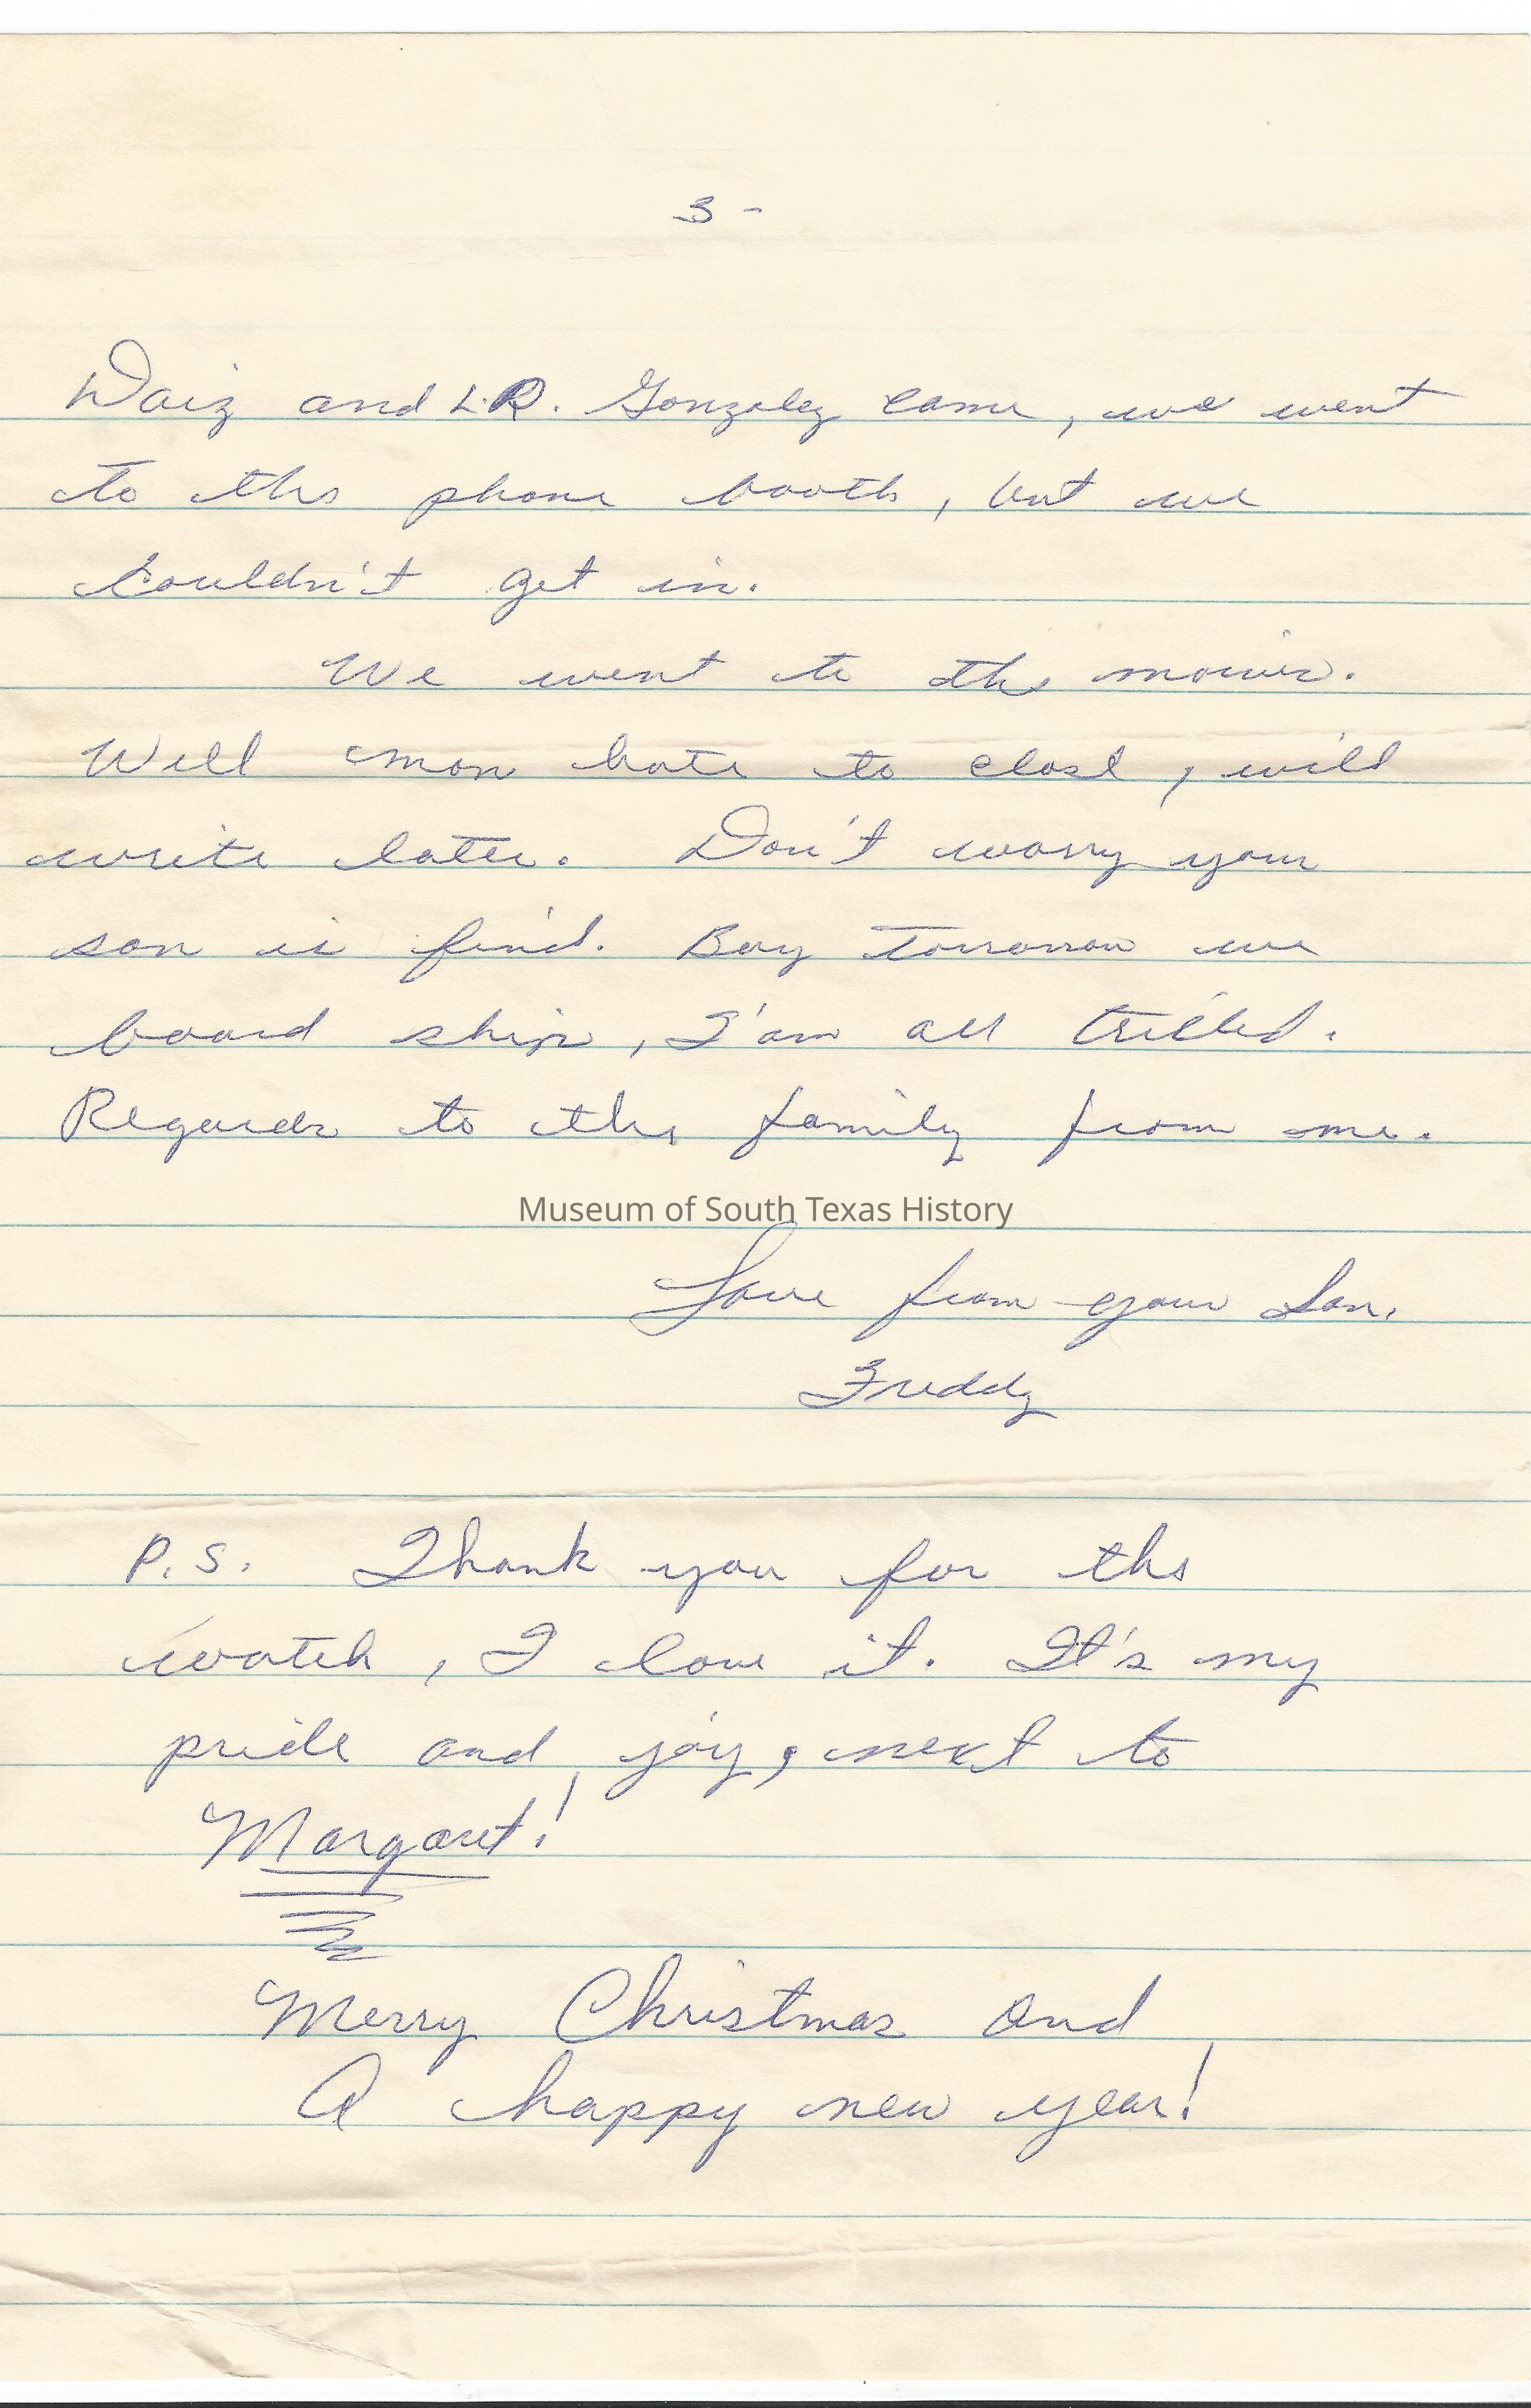 3 -
Daiz and L.R. Gonzalez came, we went
to the phone booth, but we
couldn't get in.
We went to the movie.
Well mom hate to close, will
write later. Don't worry your
son is find. Boy tomorrow we
board ship, I'am all trilled.
Regards to the family from me.
Museum of South Texas History
Love from your Son,
Freddy
P.S. Thank you for the
watch, I love it. It's my
pride and joy, next to
Margaret!
Merry Christmas and
A happy new year!